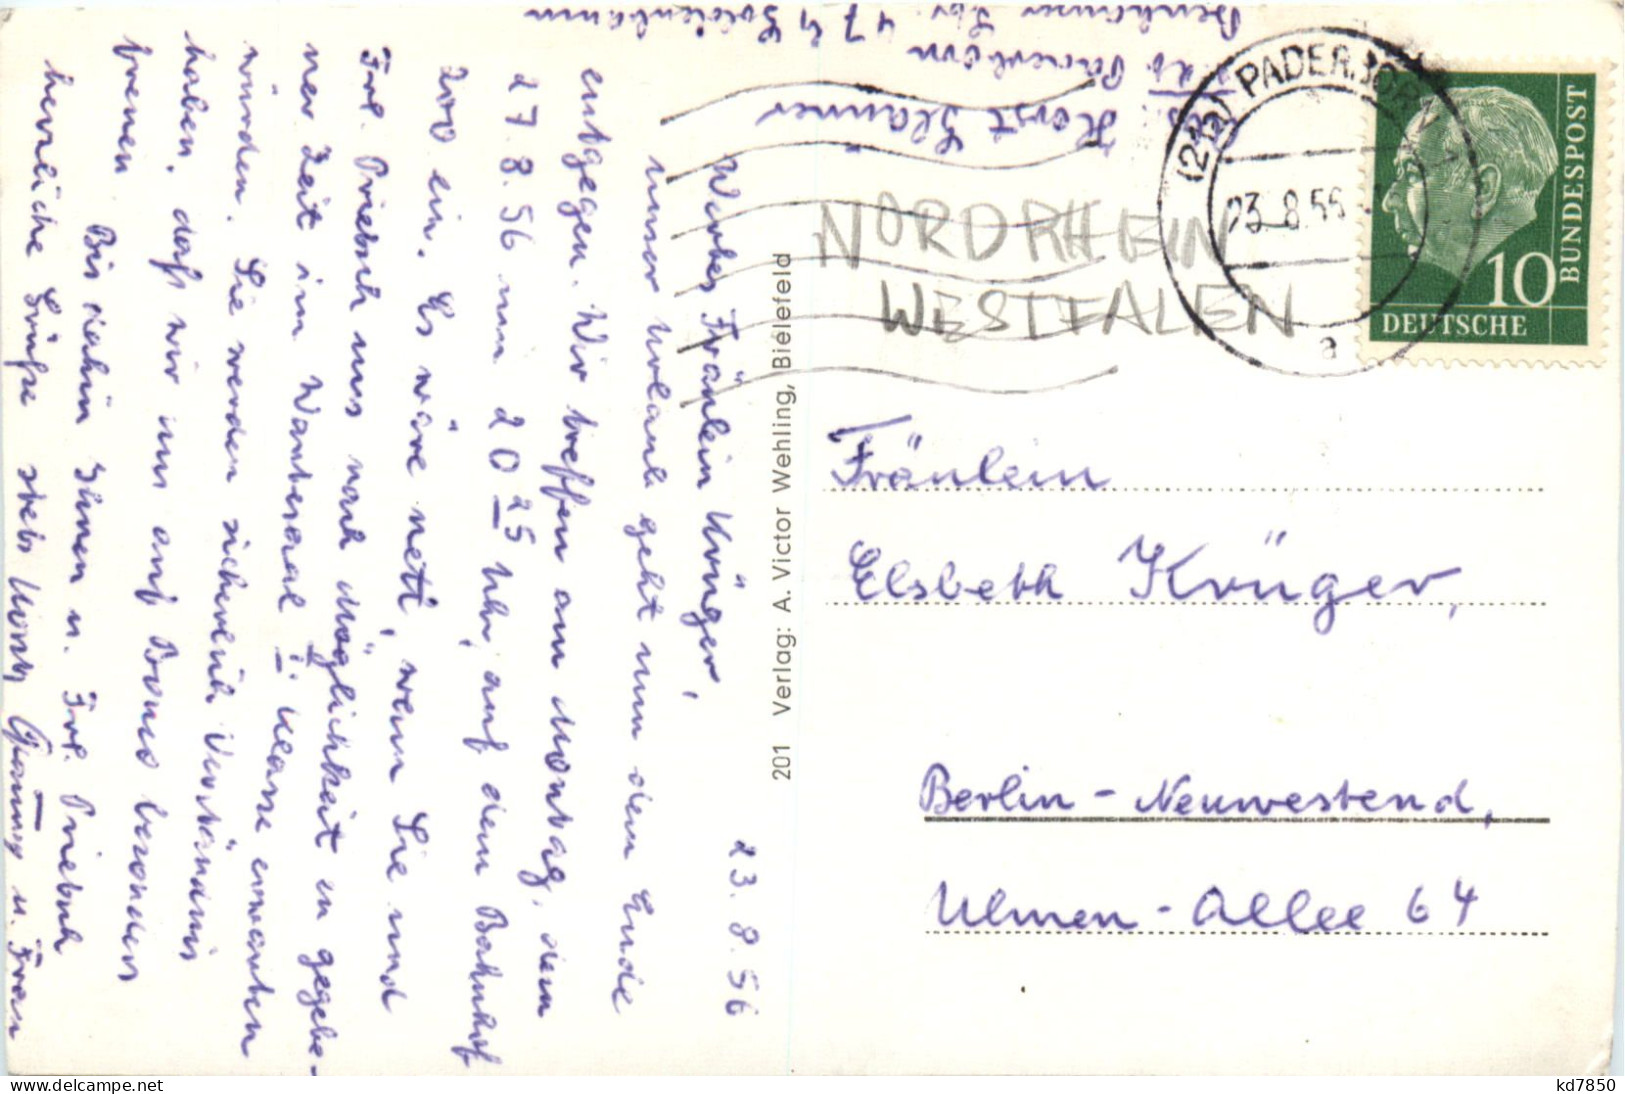 23.8.56
Wertes Fräulein Krüger,
unser Urlaub geht nun dem Ende
entgegen. Wir treffen am Montag, dem
27.8.56 um 20 25 Uhr, auf dem Bahnhof
Zoo ein. Es wäre nett, wenn Sie und
Frl. Priebuch uns nach Möglichkeit zu gegebe-
ner Zeit im Wartesaal II. Klasse erwarten
würden. Sie werden sicherlich Verständnis
haben, daß wir uns auf besonders
freuen.
Bis dahin Ihnen u. Frl. Priebuch
herzliche Grüße stets Horst u. Frau
201 Verlag: A. Victor Wehling, Bielefeld
Horst
z. Zt. Paderborn
Str. 47
(22a) PADERBORN
23.8.56
a
NORDRHEIN
WESTFALEN
10
DEUTSCHE
BUNDESPOST
Fräulein
Elsbeth Krüger,
Berlin-Neuwestend,
Ulmen-Allee 64
kd7850